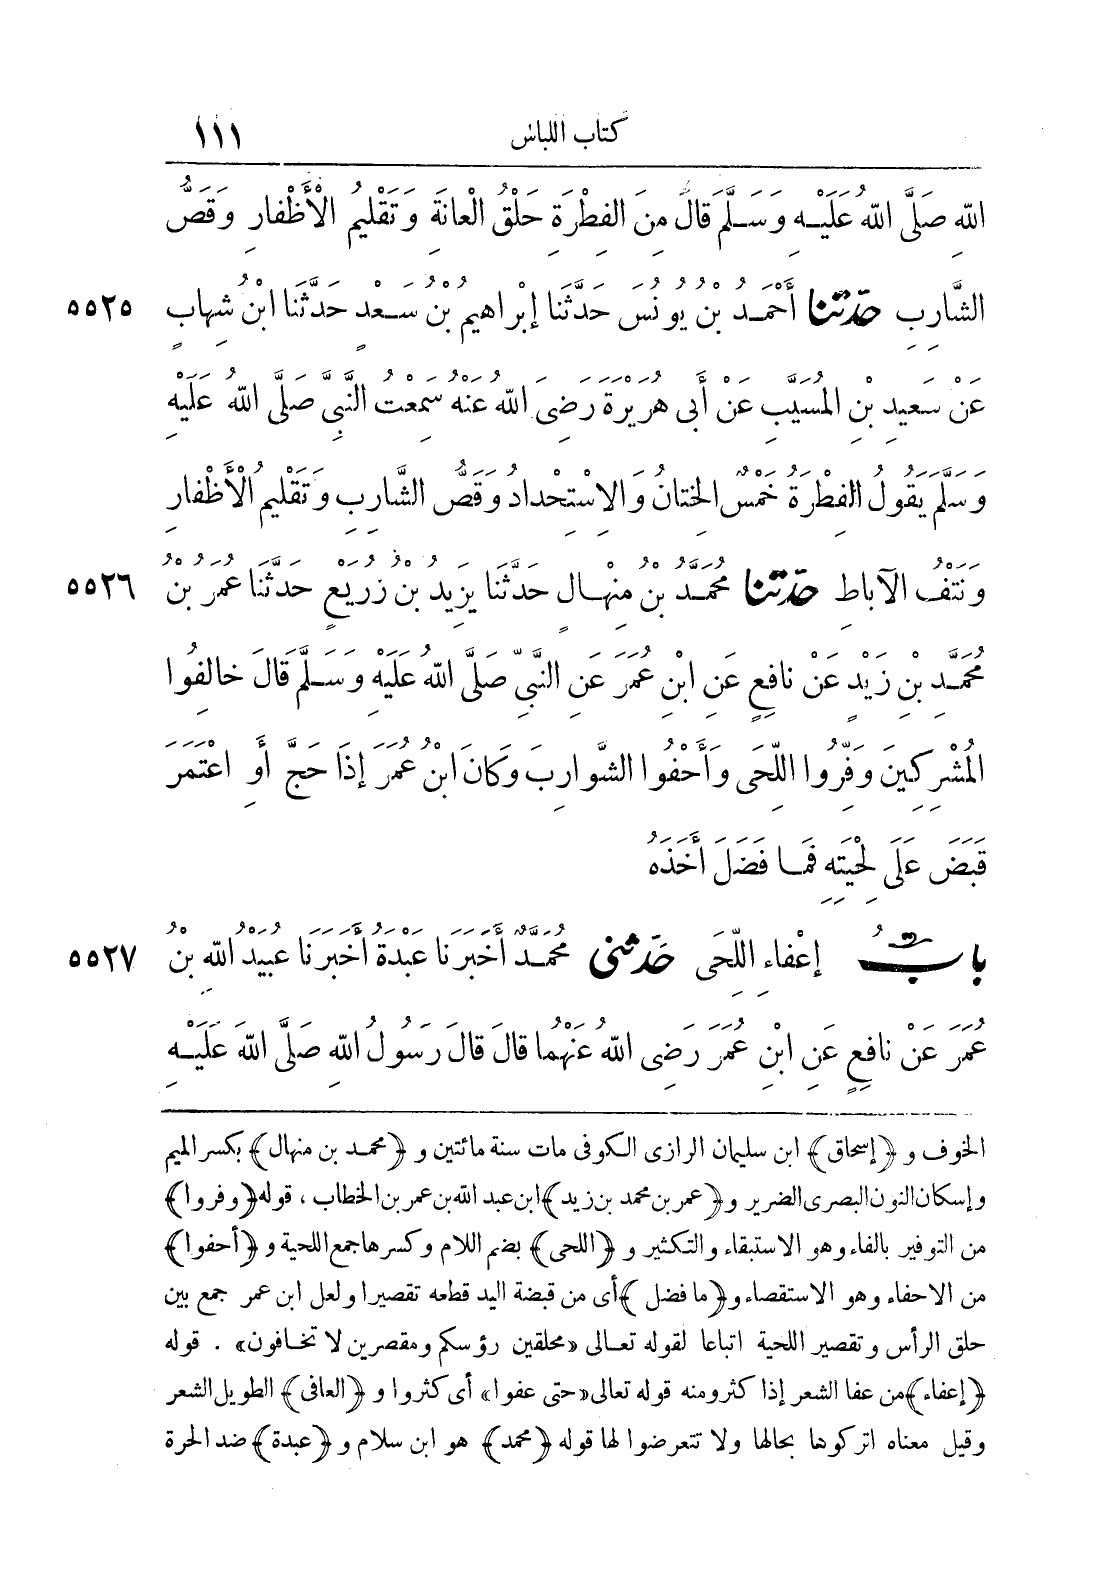 كتاب اللباس ١١١
اللهِ صَلَّى اللهُ عَلَيْهِ وَسَلَّمَ قَالَ مِنَ الفِطْرَةِ حَلْقُ الْعانَةِ وَتَقْلِيمُ الْأَظْفارِ وَقَصُّ
الشَّارِبِ حدّثنا أَحْمَدُ بْنُ يُونُسَ حَدَّثَنَا إِبْرَاهِيمُ بْنُ سَعْدٍ حَدَّثَنَا ابْنُ شِهابٍ ٥٥٢٥
عَنْ سَعِيدِ بْنِ المُسَيَّبِ عَنْ أَبِى هُرَيْرَةَ رَضِىَ اللهُ عَنْهُ سَمِعْتُ النَّبِىَّ صَلَّى اللهُ عَلَيْهِ
وَسَلَّمَ يَقُولُ الفِطْرَةُ خَمْسٌ الخِتانُ وَالِاسْتِحْدادُ وَقَصُّ الشَّارِبِ وَتَقْلِيمُ الْأَظْفارِ
وَنَتْفُ الآباطِ حدّثنا مُحَمَّدُ بْنُ مِنْهالٍ حَدَّثَنا يَزِيدُ بْنُ زُرَيْعٍ حَدَّثَنا عُمَرُ بْنُ ٥٥٢٦
مُحَمَّدِ بْنِ زَيْدٍ عَنْ نافِعٍ عَنِ ابْنِ عُمَرَ عَنِ النَّبِىِّ صَلَّى اللهُ عَلَيْهِ وَسَلَّمَ قَالَ خالِفُوا
المُشْرِكِينَ وَفِّرُوا اللِّحَى وَأَحْفُوا الشَّوارِبَ وَكانَ ابْنُ عُمَرَ إِذَا حَجَّ أَوِ اعْتَمَرَ
قَبَضَ عَلَى لِحْيَتِهِ فَمَا فَضَلَ أَخَذَهُ
بابُ إِعْفاءِ اللِّحَى حَدّثنى مُحَمَّدٌ أَخْبَرَنا عَبْدَةُ أَخْبَرَنا عُبَيْدُ اللهِ بْنُ ٥٥٢٧
عُمَرَ عَنْ نافِعٍ عَنِ ابْنِ عُمَرَ رَضِىَ اللهُ عَنْهُما قالَ قالَ رَسُولُ اللهِ صَلَّى اللهُ عَلَيْهِ
الخوف و ﴿إسحاق﴾ ابن سليمان الرازى الكوفى مات سنة مائتين و ﴿محمد بن منهال﴾ بكسر الميم
وإسكان النون البصرى الضرير و﴿عمر بن محمد بن زيد﴾ ابن عبد الله بن عمر بن الخطاب ، قوله ﴿وفروا﴾
من التوفير بالفاء وهو الاستبقاء والتكثير و ﴿اللحى﴾ بضم اللام وكسرها جمع اللحية و ﴿أحفوا﴾
من الاحفاء وهو الاستقصاء و﴿ما فضل﴾ أى من قبضة اليد قطعه تقصيرا ولعل ابن عمر جمع بين
حلق الرأس وتقصير اللحية اتباعا لقوله تعالى «محلقين رؤسكم ومقصرين لا تخافون» . قوله
﴿إعفاء﴾ من عفا الشعر إذا كثر ومنه قوله تعالى «حتى عفوا» أى كثروا و ﴿العافى﴾ الطويل الشعر
وقيل معناه اتركوها بحالها ولا تتعرضوا لها قوله ﴿محمد﴾ هو ابن سلام و ﴿عبدة﴾ ضد الحرة